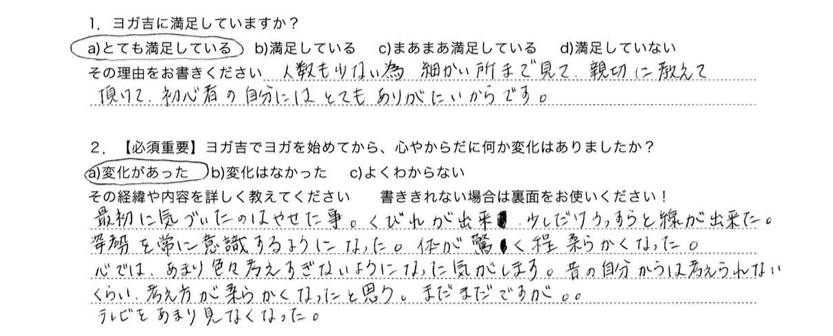 1. ヨガ吉に満足していますか？
a)とても満足している b)満足している c)まあまあ満足している d)満足していない
その理由をお書きください 人数も少ない為 細かい所まで見て、親切に教えて
頂けて、初心者の自分にはとてもありがたいからです。
2. 【必須重要】ヨガ吉でヨガを始めてから、心やからだに何か変化はありましたか？
a)変化があった b)変化はなかった c)よくわからない
その経緯や内容を詳しく教えてください 書ききれない場合は裏面をお使いください！
最初に気づいたのはやせた事。くびれが出来 、少しだけうっすらと線が出来た。
姿勢を常に意識するようになった。体が驚く程柔らかくなった。
心では、あまり色々考えすぎないようになった気がします。昔の自分からは考えられない
くらい、考え方が柔らかくなったと思う。まだまだですが。。
テレビをあまり見なくなった。